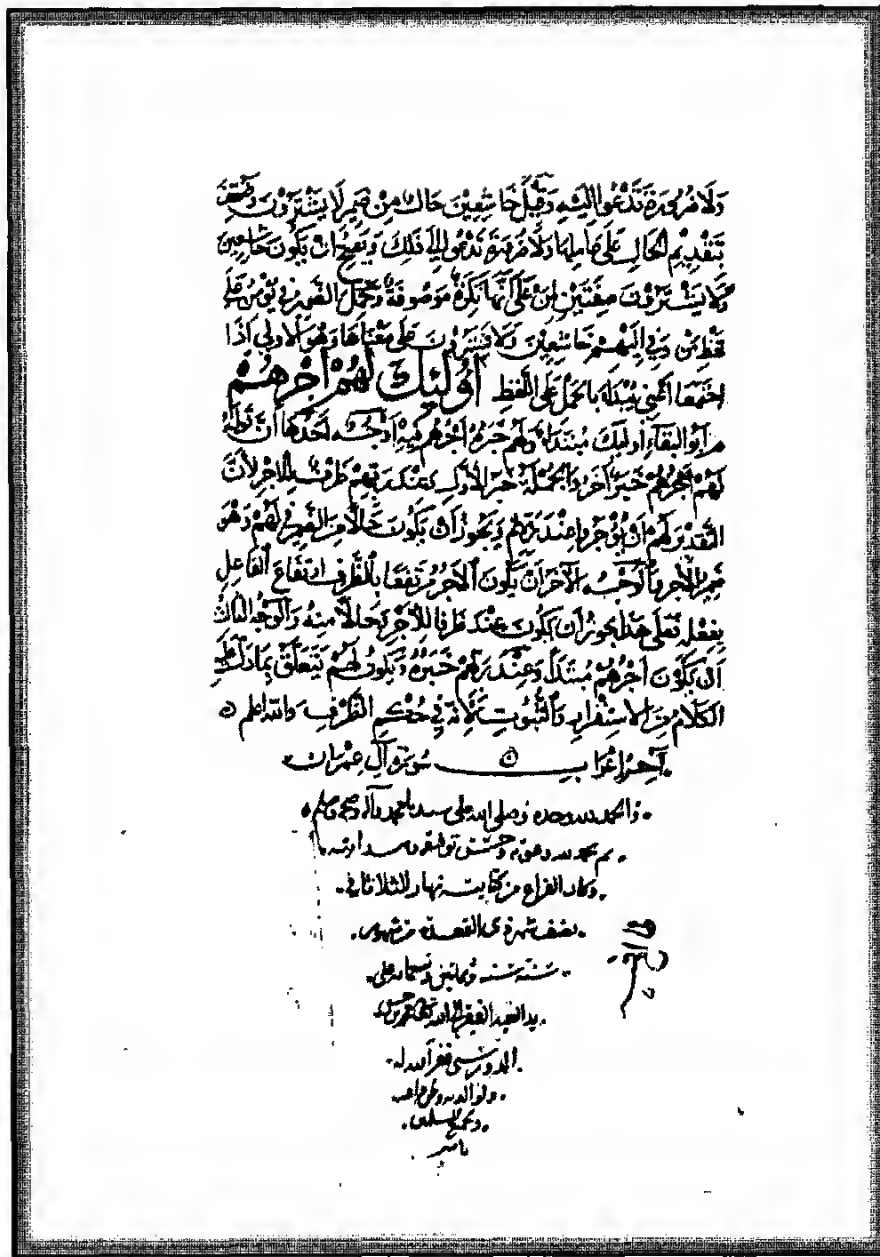 ولا ضرورة تدعوا اليه وقيل خاشعين حال من ضمير لا يشترون وضعف
بتقديم الحال على عاملها ولا ضرورة تدعوا الى ذلك ويصح ان يكون خاشعين
ولا يشترون صفتين لمن على انها نكرة موصوفة وحمل الضمير في يؤمن على
لفظ من وفي اليهم خاشعين ولا يشترون على معناها وهو الاولى اذا
اجتمعا اعني يبدأ بالحمل على اللفظ اوليك لهم اجرهم
ابو البقاء اوليك مبتدأ ولهم اجرهم فيه اوجه احدها ان قوله
لهم اجرهم خبر اخر والجملة خبر الاول عند ربهم ظرف للاجر لأن
التقدير لهم ان يؤجروا عند ربهم ويجوز أن يكون حالا من الضمير في لهم وهو
ضمير الاجر والوجه الآخر ان يكون الاجر مرتفعا بالظرف ارتفاع الفاعل
بفعله فعلى هذا يجوز أن يكون عند ظرفا للاجر وحالا منه والوجه الثالث
ان يكون اجرهم مبتدأ وعند ربهم خبره ويكون لهم يتعلق بما دل عليه
الكلام من الاستقرار والثبوت لانه في حكم الظرف والله اعلم
آخر اعراب سورة آل عمران
والحمد لله وحده وصلى الله على سيدنا محمد وآله وصحبه وسلم
تم بحمد الله وعونه وحسن توفيقه
وكان الفراغ من كتابته نهار الثلاثا في
نصف شهر ذي القعدة من شهور
سنة ستة وثمانين وتسعماية على
يد العبد الفقير الى الله تعالى محمد بن
غفر الله له
ولوالديه
ولجميع المسلمين
امين